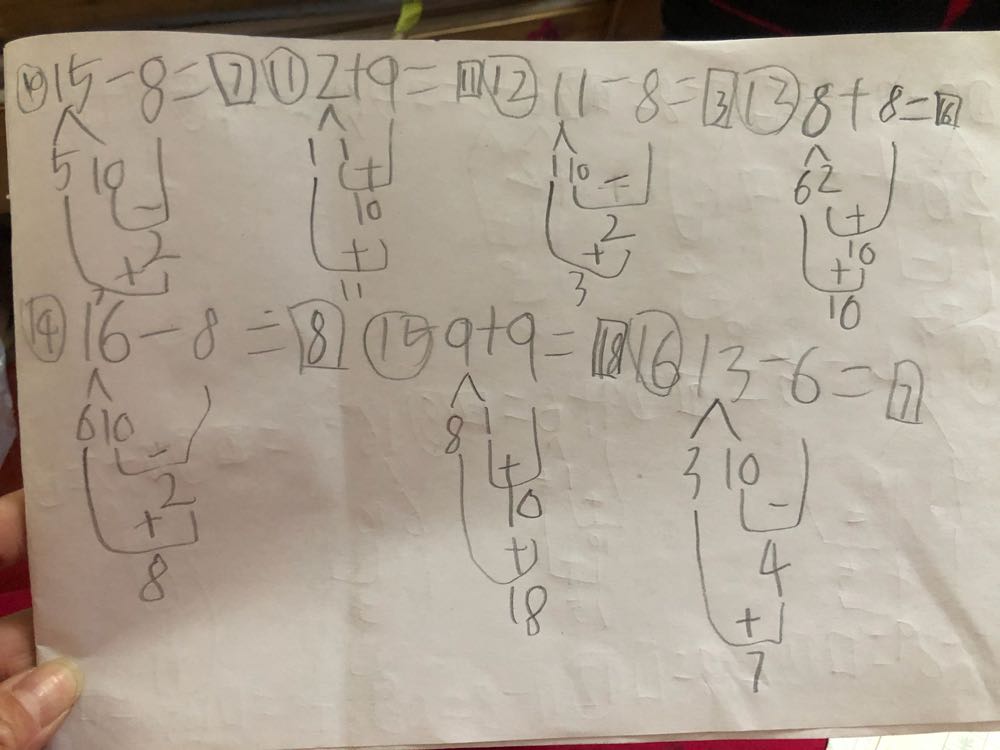 ⑩ 15-8=7 ⑪ 2+9=11 ⑫ 11-8=3 ⑬ 8+8=16
5 10 1 1 + 1 10 - 6 2
- 10 2 +
2 + + 10
+ 11 3 +
7 10
⑭ 16-8=8 ⑮ 9+9=18 ⑯ 13-6=7
6 10 8 1 3 10
- + -
2 10 4
+ + +
8 18 7